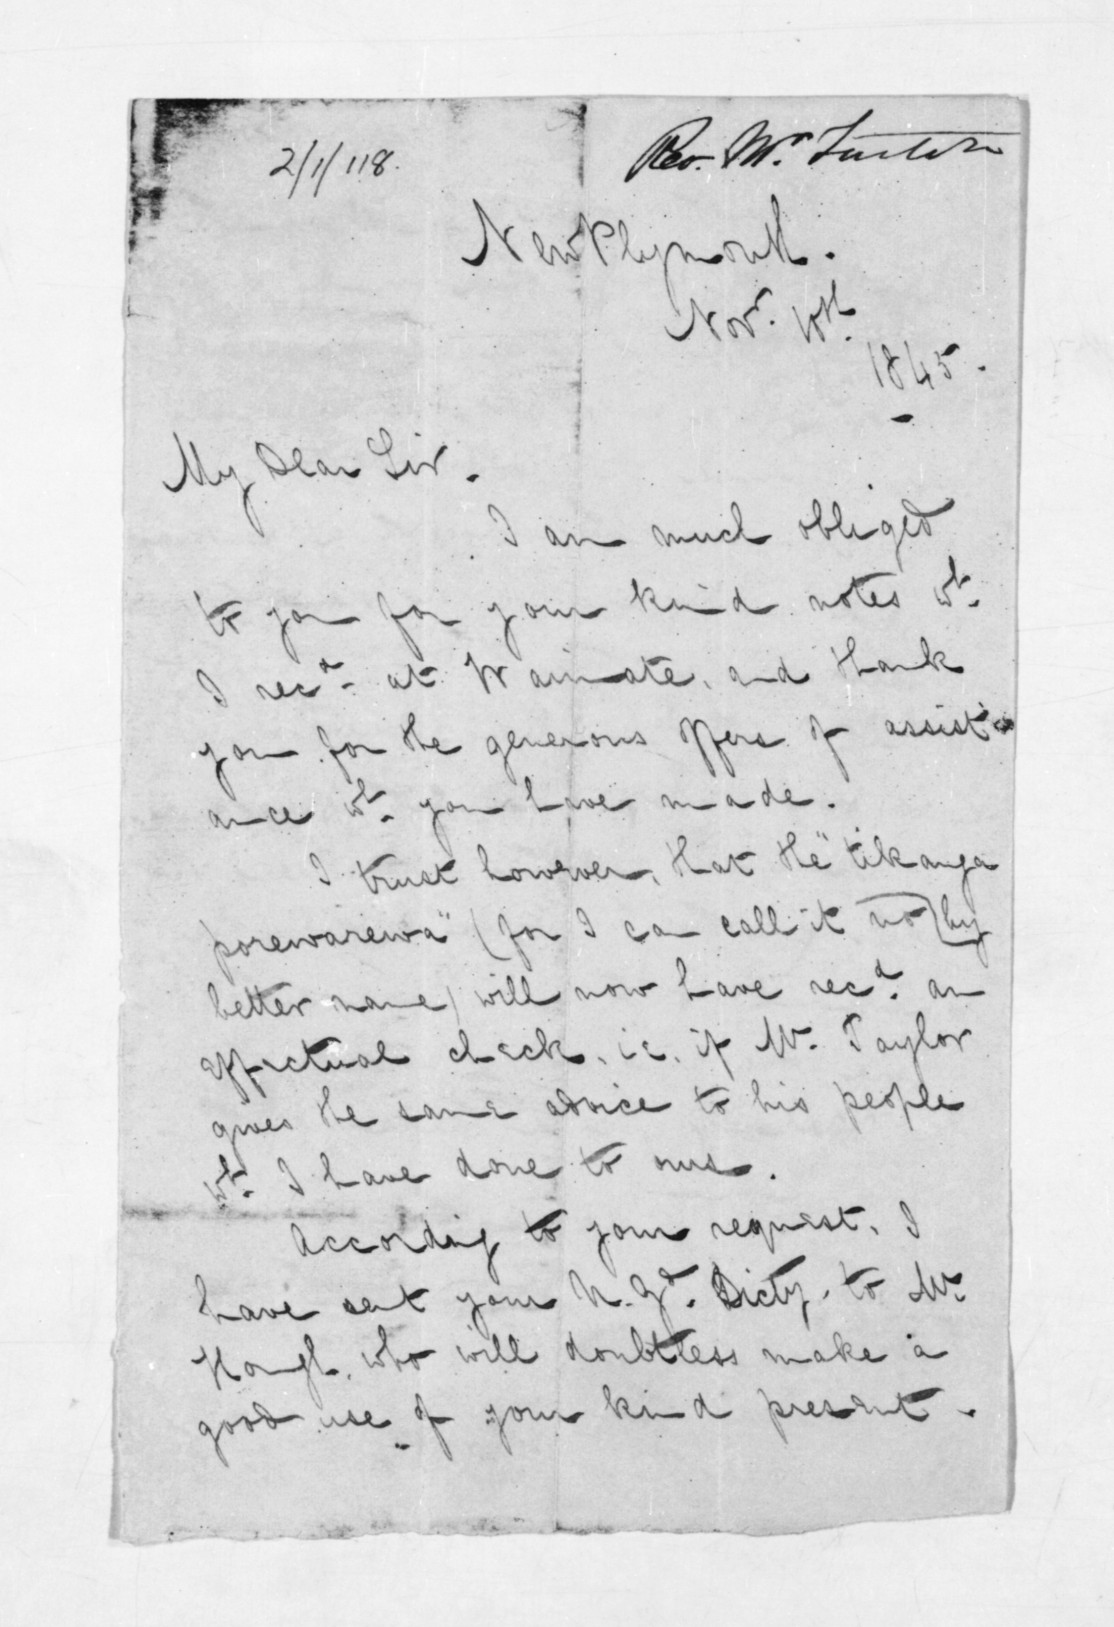 2/1/118.
Rev. Mr. Turton
New Plymouth.
Novr. 10th.
1845.
My Dear Sir.
I am much obliged
to you for your kind notes wh.
I recd. at Waimate, and thank
you for the generous offers of assist-
ance wh. you have made.
I trust however, that the "tikanga
porewarewa" (for I can call it no by
better name) will now have recd. an
effectual check, i.e. if Mr. Taylor
gives the same advice to his people
wh. I have done to ours.
According to your request, I
have sent your N. Zd. Dicty. to Mr.
Hough, who will doubtless make a
good use of your kind present.